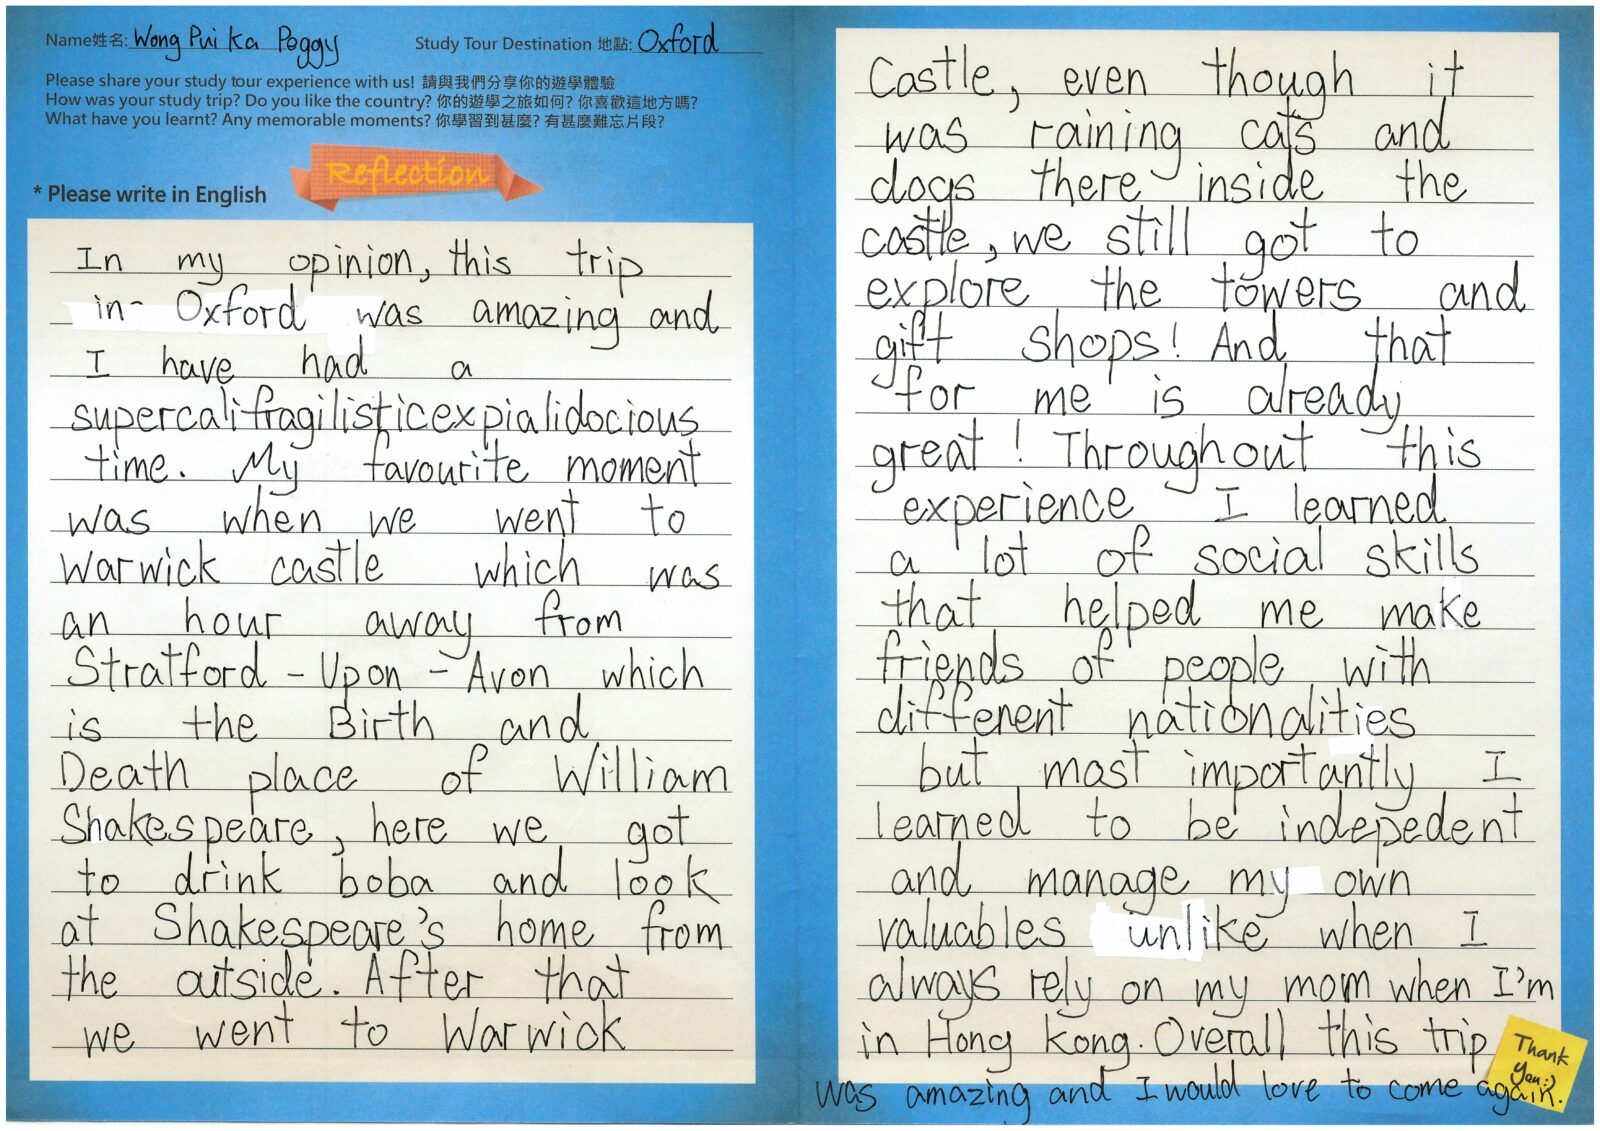 Name姓名: Wong Pui Ka Peggy
Study Tour Destination 地點: Oxford
Please share your study tour experience with us! 請與我們分享你的遊學體驗
How was your study trip? Do you like the country? 你的遊學之旅如何? 你喜歡這地方嗎?
What have you learnt? Any memorable moments? 你學習到甚麼? 有甚麼難忘片段?
Reflection
* Please write in English
In my opinion, this trip
in- Oxford was amazing and
I have had a
supercalifragilisticexpialidocious
time. My favourite moment
was when we went to
Warwick castle which was
an hour away from
Stratford - Upon - Avon which
is the Birth and
Death place of William
Shakespeare, here we got
to drink boba and look
at Shakespeare's home from
the outside. After that
we went to Warwick
Castle, even though it
was raining cats and
dogs there inside the
castle, we still got to
explore the towers and
gift shops! And that
for me is already
great! Throughout this
experience I learned
a lot of social skills
that helped me make
friends of people with
different nationalities
but most importantly I
learned to be indepedent
and manage my own
valuables unlike when I
always rely on my mom when I'm
in Hong Kong. Overall this trip
was amazing and I would love to come again.
Thank
you:)